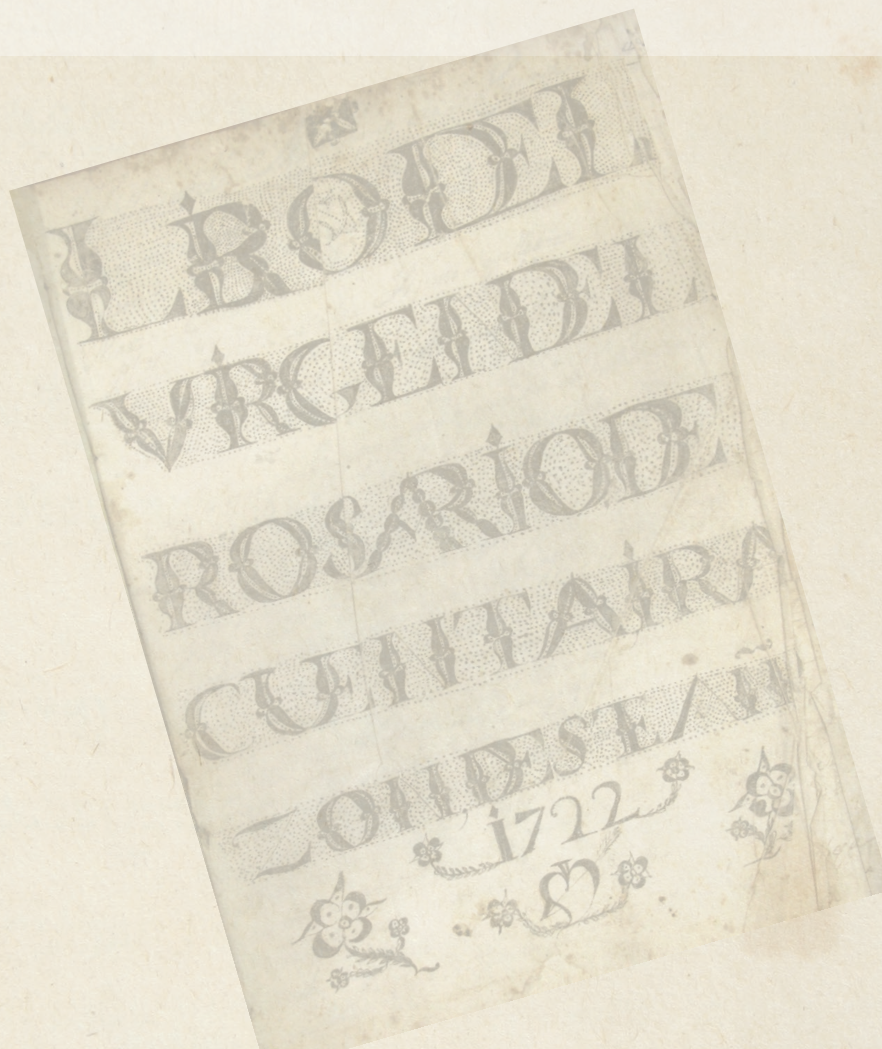 LBRO DEL
VIRGEN DEL
ROSARIO DE
CUENTA I RA
ZON DESTE AÑ
1722